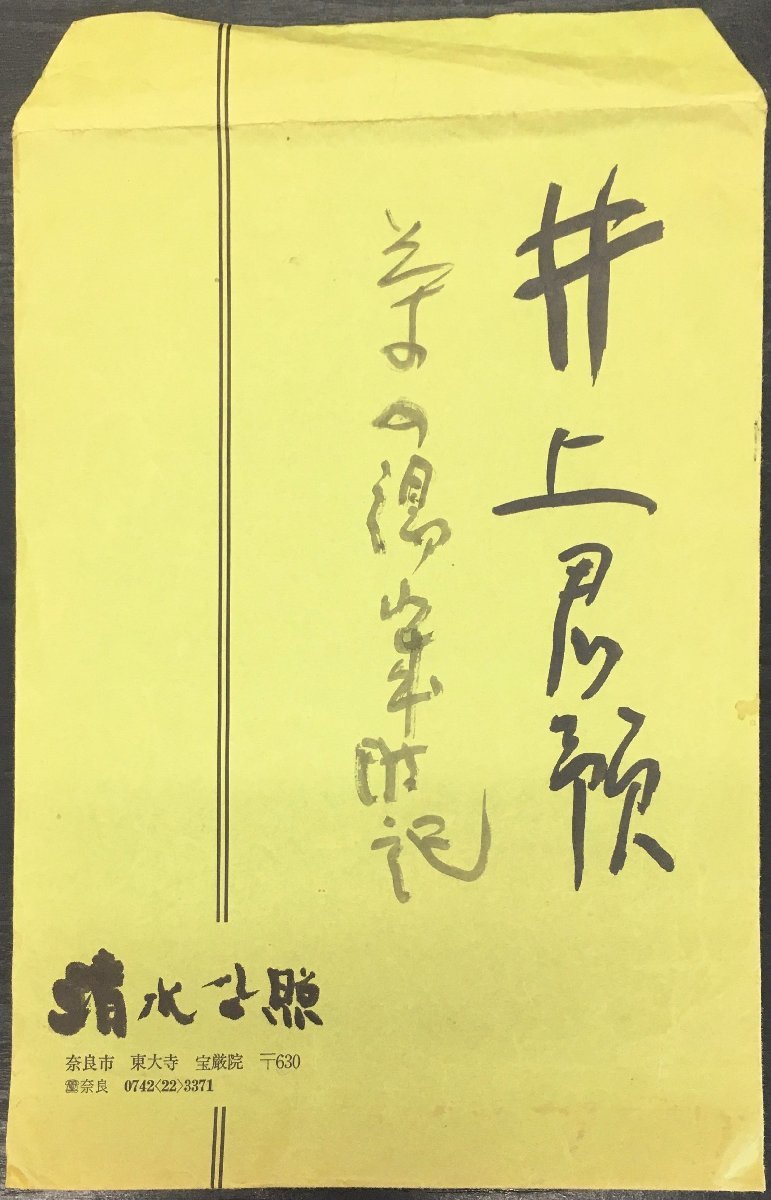 井上君預
茶の湯歳時記
清水公照
奈良市 東大寺 宝厳院 〒630
奈良 0742〈22〉3371